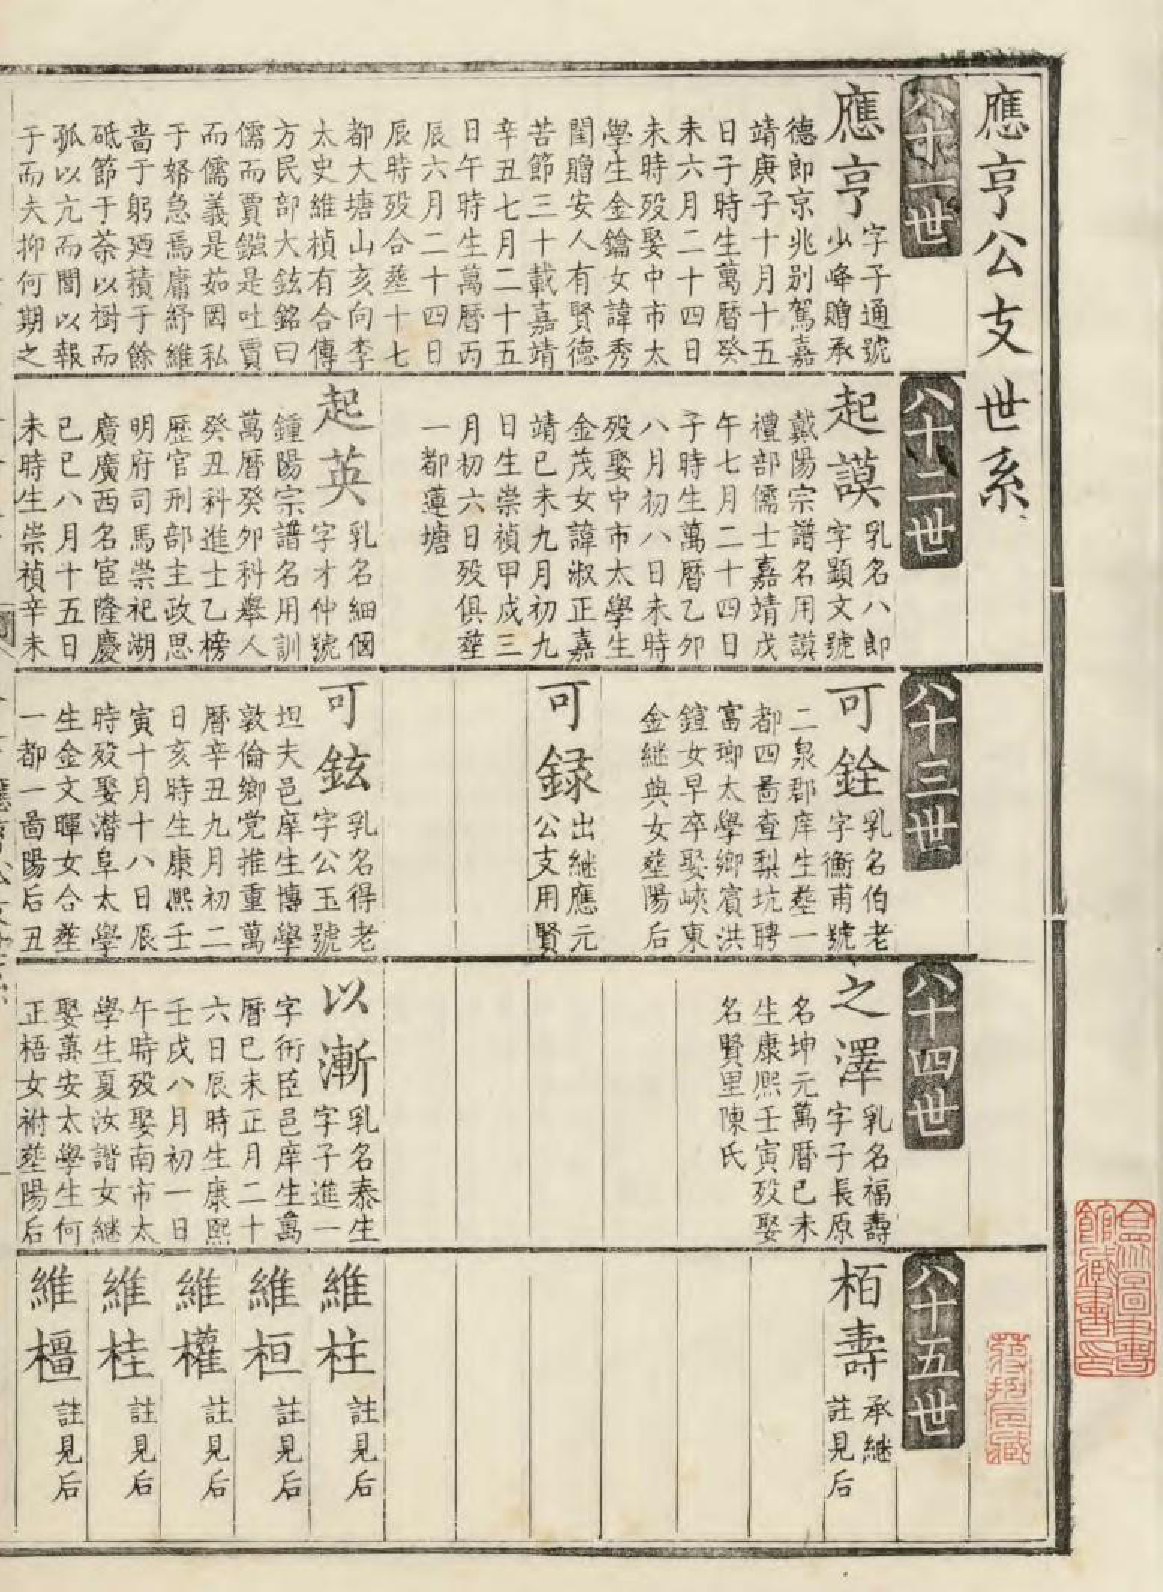 應亨公支世系
八十一世
應亨
字子通號
少峰贈承
德郎京兆別駕嘉
靖庚子十月十五
日子時生萬曆癸
未六月二十四日
未時殁娶中市太
學生金鑰女諱秀
閨贈安人有賢德
苦節三十載嘉靖
辛丑七月二十五
日午時生萬曆丙
辰六月二十四日
辰時殁合塟十七
都大塘山亥向李
太史維楨有合傳
方民部大鉉銘曰
儒而賈鏹是吐賈
而儒義是茹囡私
于帑急焉庸紓維
嗇于躬廼積于餘
砥節于荼以樹而
孤以亢而閭以報
于而大抑何期之
八十二世
起謨
乳名八郎
字顯文號
戴陽宗譜名用謨
禮部儒士嘉靖戊
午七月二十四日
子時生萬曆乙卯
八月初八日未時
殁娶中市太學生
金茂女諱淑正嘉
靖已未九月初九
日生崇禎甲戌三
月初六日殁俱塟
一都蓮塘
起英
乳名細個
字才仲號
鍾陽宗譜名用訓
萬曆癸卯科舉人
癸丑科進士乙榜
歷官刑部主政思
明府司馬崇祀湖
廣廣西名宦隆慶
已巳八月十五日
未時生崇禎辛未
八十三世
可銓
乳名伯老
字衡甫號
二泉郡庠生塟一
都四啚查梨坑聘
富瑯太學鄉賓洪
鍹女早卒娶峽東
金継典女塟陽后
可録
出継應元
公支用賢
可鉉
乳名得老
字公玉號
坦夫邑庠生博學
敦倫鄉党推重萬
曆辛丑九月初二
日亥時生康熙壬
寅十月十八日辰
時殁娶潜阜太學
生金文暉女合塟
一都一啚陽后丑
八十四世
之澤
乳名福壽
字子長原
名坤元萬曆已未
生康熙壬寅殁娶
名賢里陳氏
以漸
乳名泰生
字子進一
字衎臣邑庠生萬
曆已未正月二十
六日辰時生康熙
壬戌八月初一日
午時殁娶南市太
學生夏汝諧女継
娶藁安太學生何
正梧女祔塟陽后
八十五世
栢壽
承継
註見后
維柱
註見后
維桓
註見后
維權
註見后
維桂
註見后
維橿
註見后